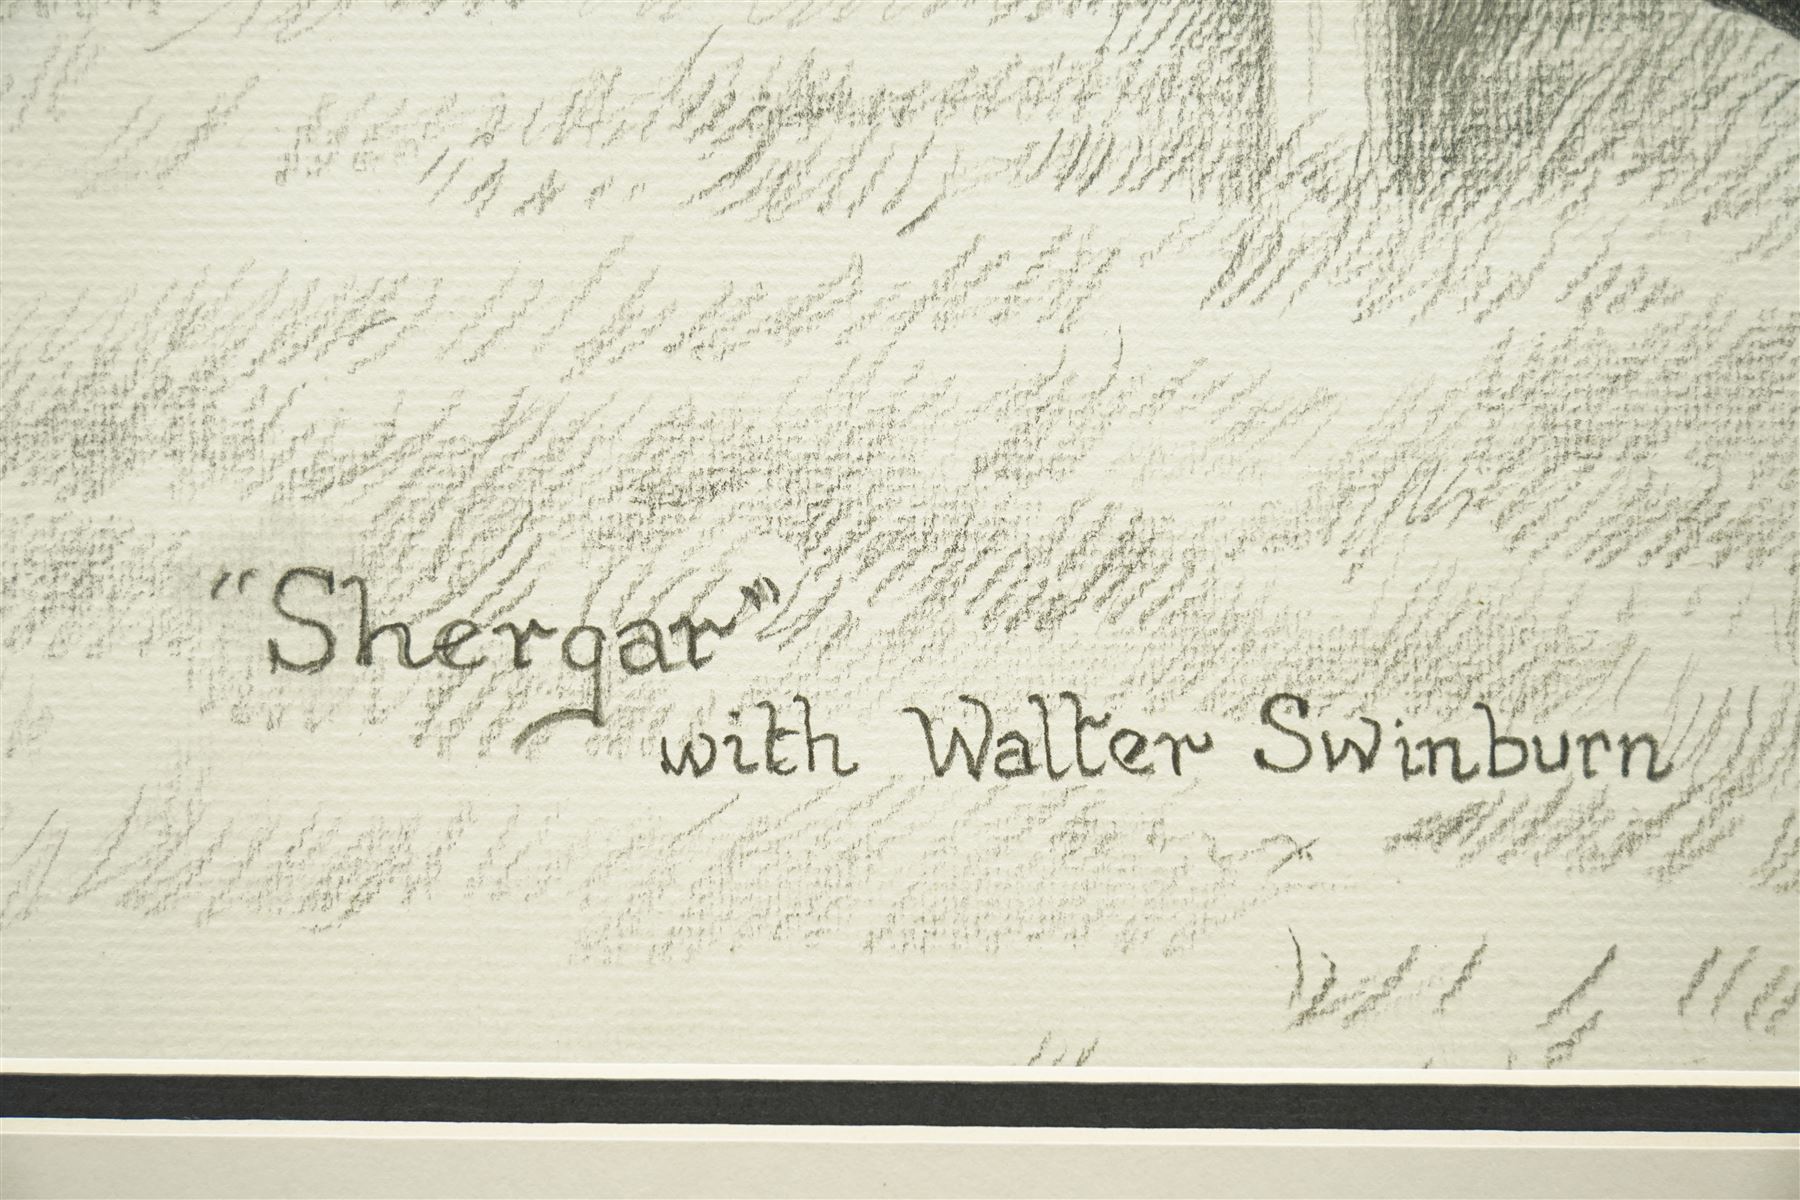 "Shergar"
with Walter Swinburn